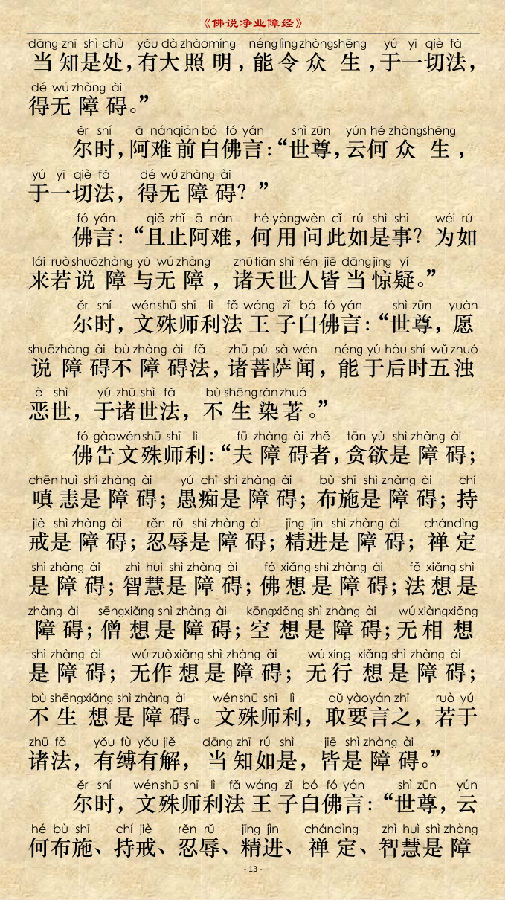 《佛说净业障经》
dāng zhī shì chù yǒu dà zhàomíng nénglìngzhòngshēng yú yí qiè fǎ
当知是处，有大照明，能令众生，于一切法，
dé wú zhàng ài
得无障碍。”
ěr shí ā nánqián bó fó yán shì zūn yún hé zhòngshēng
尔时，阿难前白佛言：“世尊，云何众生，
yú yí qiè fǎ dé wú zhàng ài
于一切法，得无障碍？”
fó yán qiě zhǐ ā nán hé yòngwèn cǐ rú shì shì wéi rú
佛言：“且止阿难，何用问此如是事？为如
lái ruò shuōzhàng yǔ wú zhàng zhū tiān shì rén jiē dāngjīng yí
来若说障与无障，诸天世人皆当惊疑。”
ěr shí wénshū shī lì fǎ wáng zǐ bó fó yán shì zūn yuàn
尔时，文殊师利法王子白佛言：“世尊，愿
shuōzhàng ài bù zhàng ài fǎ zhū pú sà wén néng yú hòu shí wǔ zhuó
说障碍不障碍法，诸菩萨闻，能于后时五浊
è shì yú zhū shì fǎ bù shēngrǎnzhuó
恶世，于诸世法，不生染著。”
fó gàowénshū shī lì fū zhàng ài zhě tān yù shì zhàng ài
佛告文殊师利：“夫障碍者，贪欲是障碍；
chēnhuì shì zhàng ài yú chī shì zhàng ài bù shī shì zhàng ài chí
嗔恚是障碍；愚痴是障碍；布施是障碍；持
jiè shì zhàng ài rěn rǔ shì zhàng ài jīng jìn shì zhàng ài chándìng
戒是障碍；忍辱是障碍；精进是障碍；禅定
shì zhàng ài zhì huì shì zhàng ài fó xiǎng shì zhàng ài fǎ xiǎng shì
是障碍；智慧是障碍；佛想是障碍；法想是
zhàng ài sēngxiǎng shì zhàng ài kōngxiǎng shì zhàng ài wú xiàngxiǎng
障碍；僧想是障碍；空想是障碍；无相想
shì zhàng ài wú zuò xiǎng shì zhàng ài wú xíng xiǎng shì zhàng ài
是障碍；无作想是障碍；无行想是障碍；
bù shēngxiǎng shì zhàng ài wénshū shī lì qǔ yàoyán zhī ruò yú
不生想是障碍。文殊师利，取要言之，若于
zhū fǎ yǒu fù yǒu jiě dāng zhī rú shì jiē shì zhàng ài
诸法，有缚有解，当知如是，皆是障碍。”
ěr shí wénshū shī lì fǎ wáng zǐ bó fó yán shì zūn yún
尔时，文殊师利法王子白佛言：“世尊，云
hé bù shī chí jiè rěn rǔ jīng jìn chándìng zhì huì shì zhàng
何布施、持戒、忍辱、精进、禅定、智慧是障
- 13 -